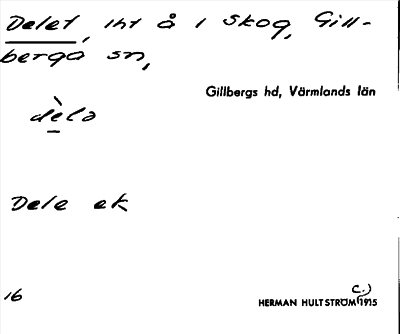 Delet, int å i Skog, Gill-
berga sn,
Gillbergs hd, Värmlands län
dèlə
Dele ek
16
HERMAN HULTSTRÖM (c.) 1915